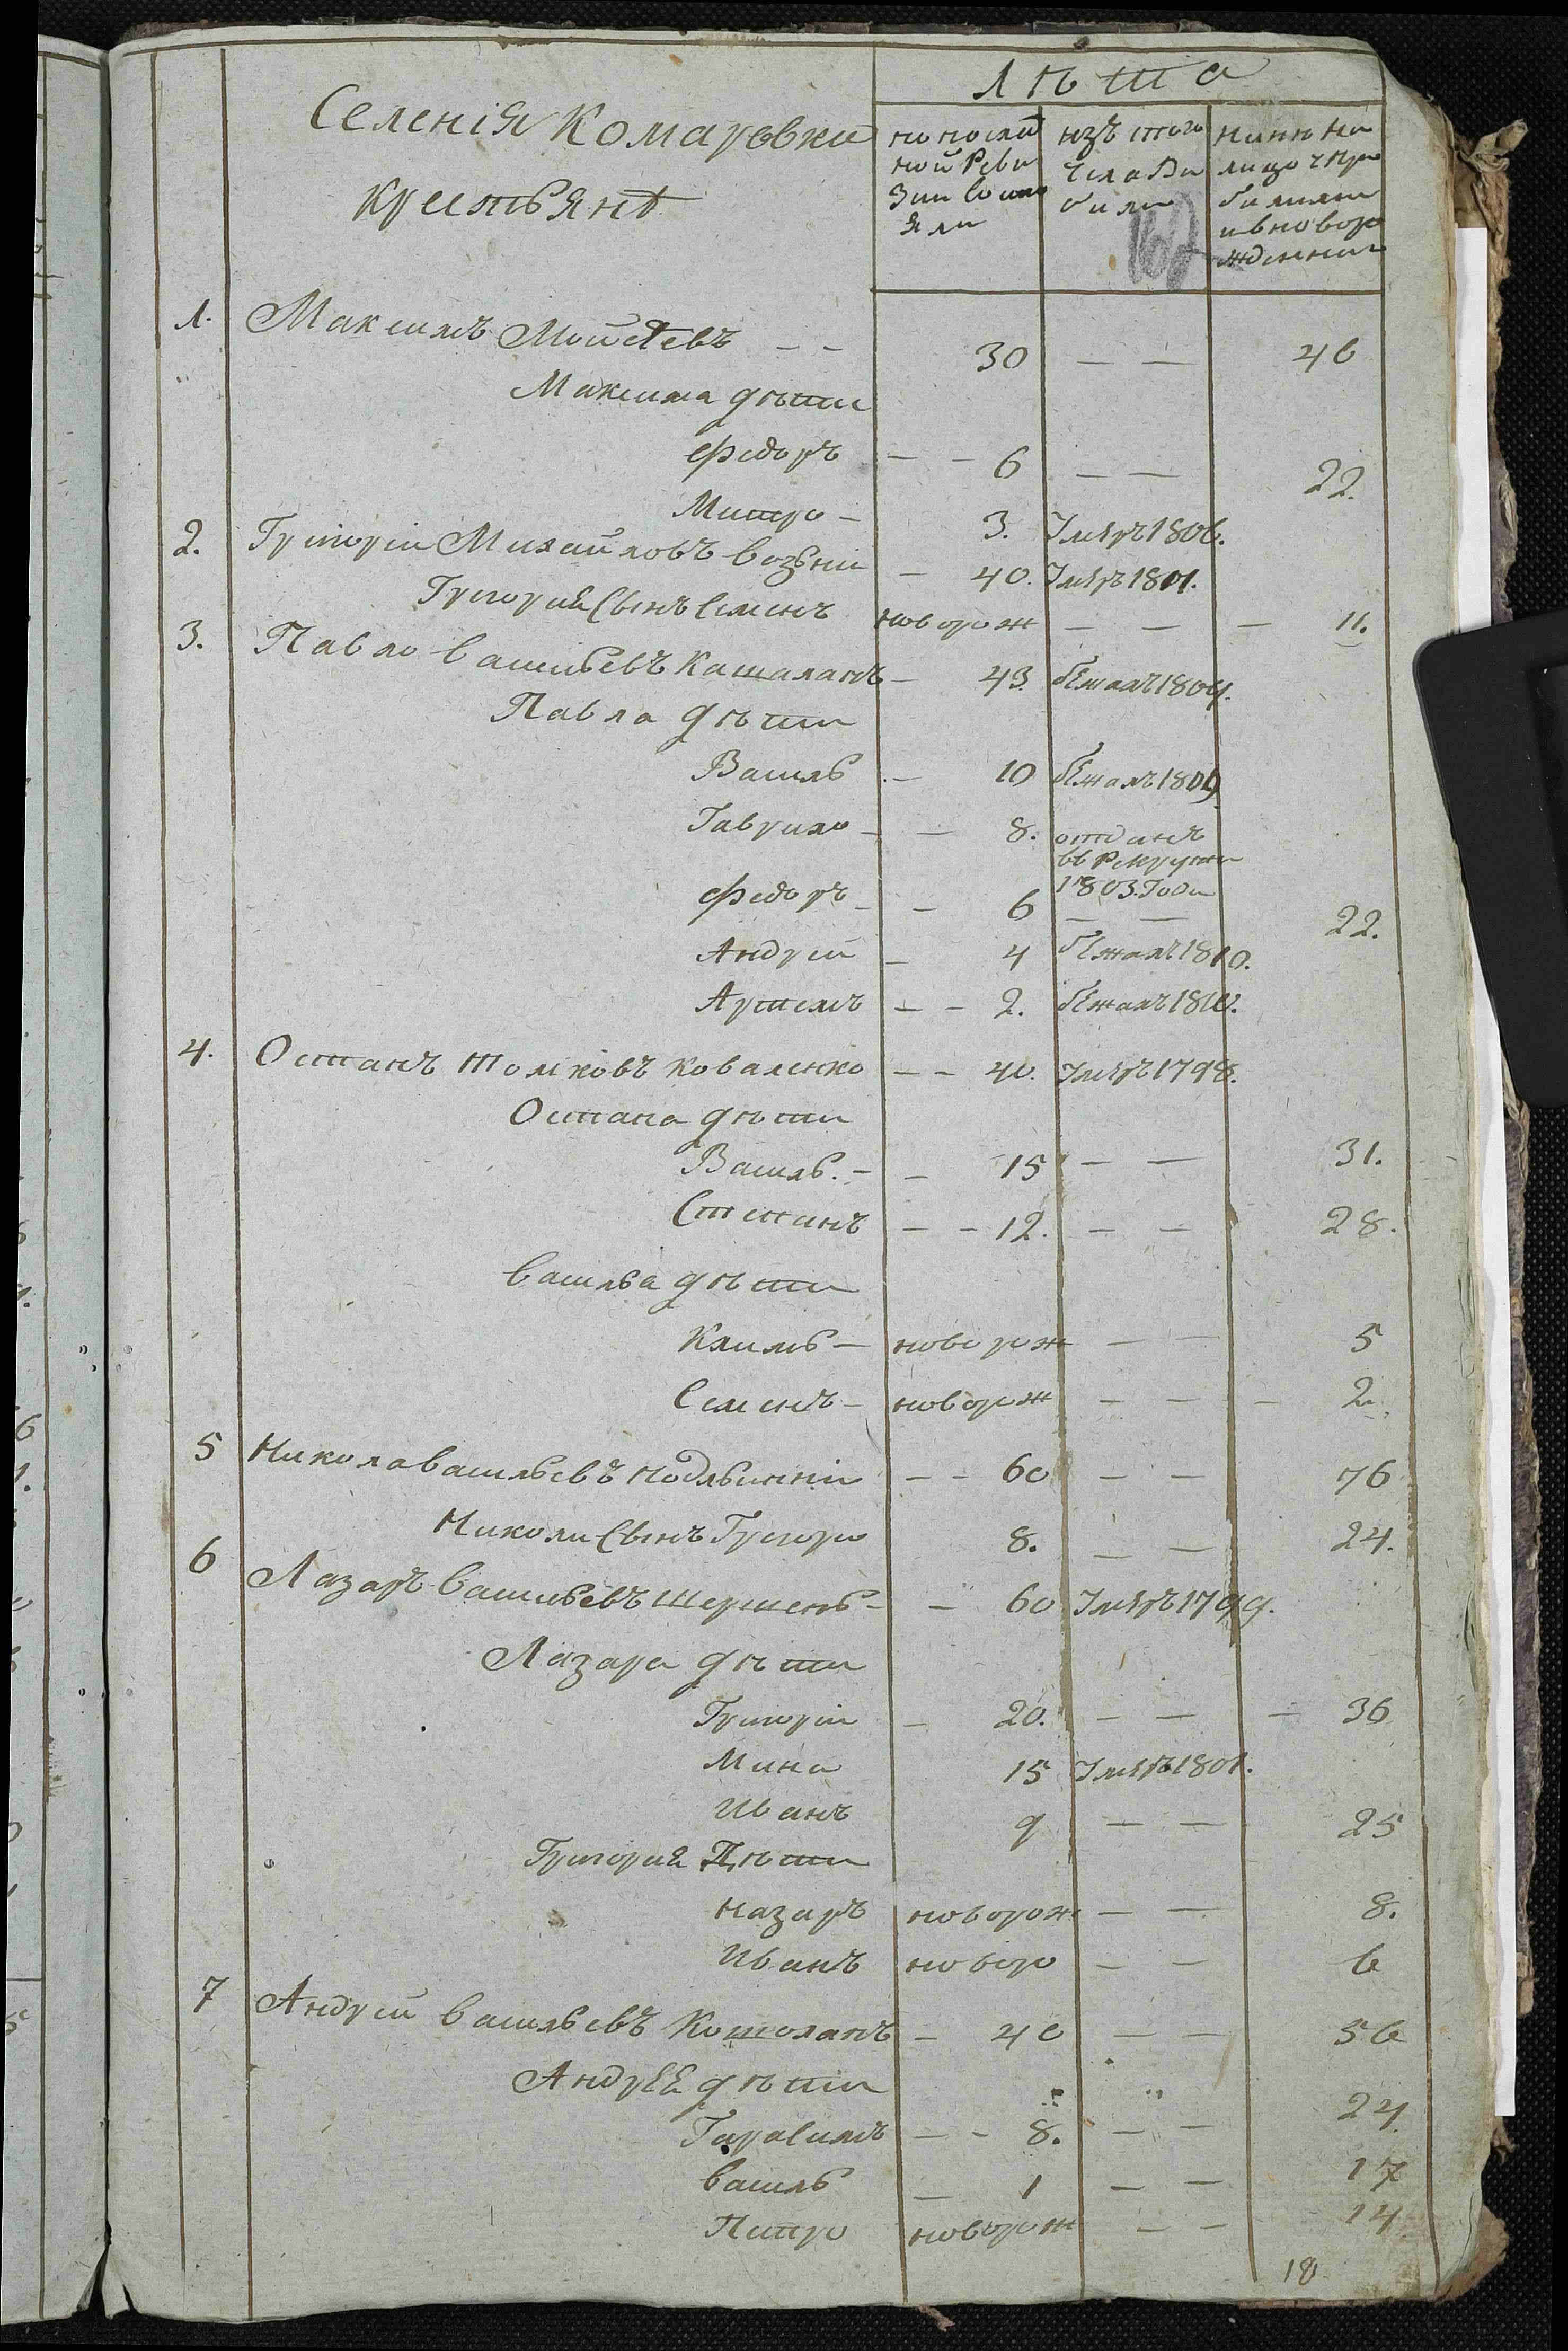 Лѣта
Селенія Комаровки
крестьянѣ
по послѣд
ной Реви
зии состо
яли
изъ того
числа вы
были
ныне на
лицо с при
былими
и вноворо
жденими
1. Максимъ Мойсѣевъ — — 30 — — 46
Максима дѣти
Федоръ — — 6 — — 22.
Митро — 3. Умѣръ 1806.
2. Григорій Михайловъ Возний — 40. Умѣръ 1801.
Григория Сынъ Семенъ новорож — — — 11.
3. Павло Васильевъ Каталанъ — 43. бѣжалъ 1809.
Павла дѣти
Василь — 10 бѣжалъ 1809
Гаврило — — 8. отданъ
въ Рекруты
1803. Года
Федоръ — — 6 — — 22.
Андрей — 4 бѣжалъ 1810.
Артемъ — — 2. бѣжалъ 1810.
4. Остапъ Томковъ Коваленко — — 40. Умѣръ 1798.
Остапа дѣти
Василь. — — 15 — — 31.
Степанъ — — 12. — — 28.
Василья дѣти
Климъ — новорож — — 5
Семенъ — новорож — — — 2.
5 Никола Васильевъ Подльинній — — 60 — — 76
Николи Сынъ Григоро 8. — — 24.
6 Лазаръ Васильевъ Шершень — — 60 Умѣръ 1799.
Лазара дѣти
Григорій — 20. — — — 36
Мина 15 Умѣръ 1801.
Иванъ 9 — — 25
Григория Дѣти
Назаръ новорож — — 8.
Иванъ новоро — — 6
7 Андрей Васильевъ Котоланъ — 40 — — 56
Андрѣя дѣти
Гарасимъ — — 8. — — 24.
Василь — 1 — — 17
Питро новорож — — 14
18